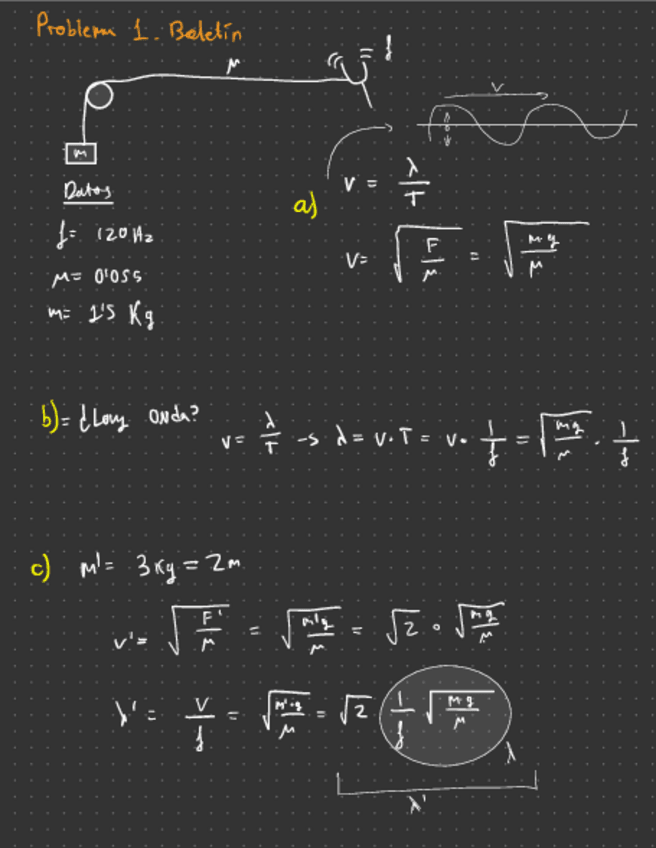 Problema 1. Boletín
μ
f
v
m
Datos
f= 120 Hz
μ= 0'055
m= 1'5 Kg
a) v = λ/T
v= √(F/μ) = √(m·g/μ)
b)= ¿Long onda? v= λ/T -> λ= v·T = v· 1/f = √(mg/μ) · 1/f
c) m'= 3Kg = 2m
v'= √(F'/μ) = √(m'g/μ) = √2 · √(mg/μ)
λ' = v/f = √(m'·g/μ) = √2 1/f √(m·g/μ)
λ
λ'